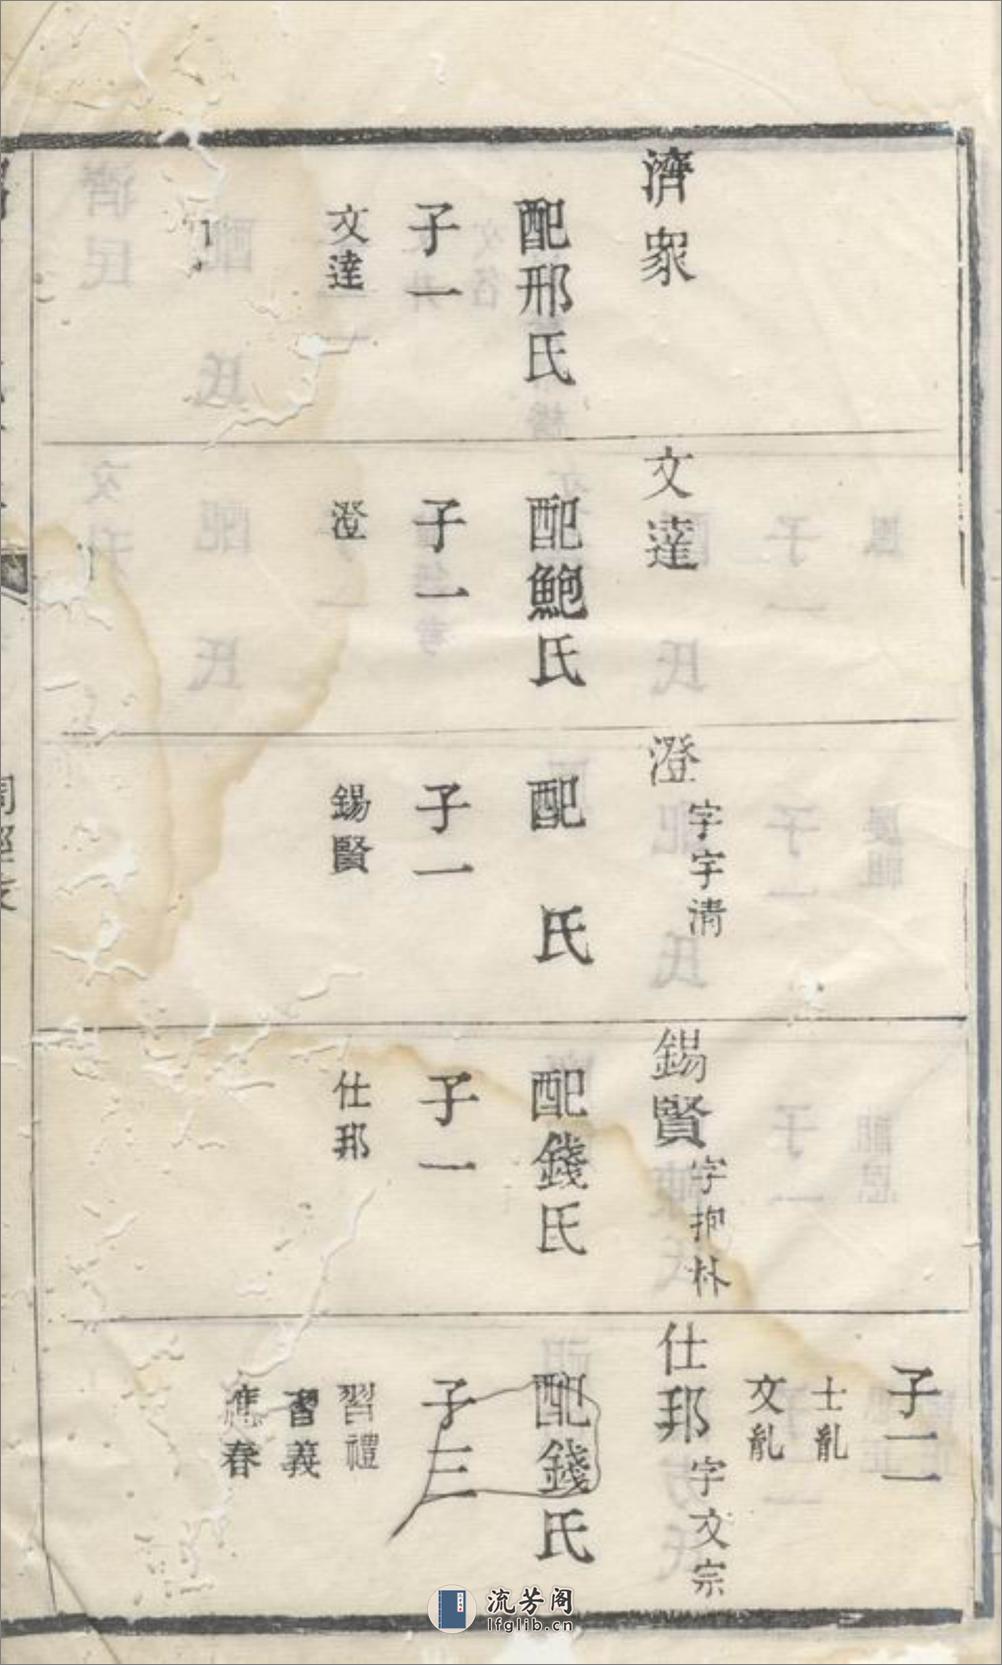 濟眾
配邢氏
子一
文達
文達
配鮑氏
子一
澄
澄 字宇清
配 氏
子一
錫賢
錫賢 字抱朴
配錢氏
子一
仕邦
子二
士亂
文亂
仕邦 字文宗
配錢氏
子三
習禮
習義
應春
流芳阁
lfglib.cn